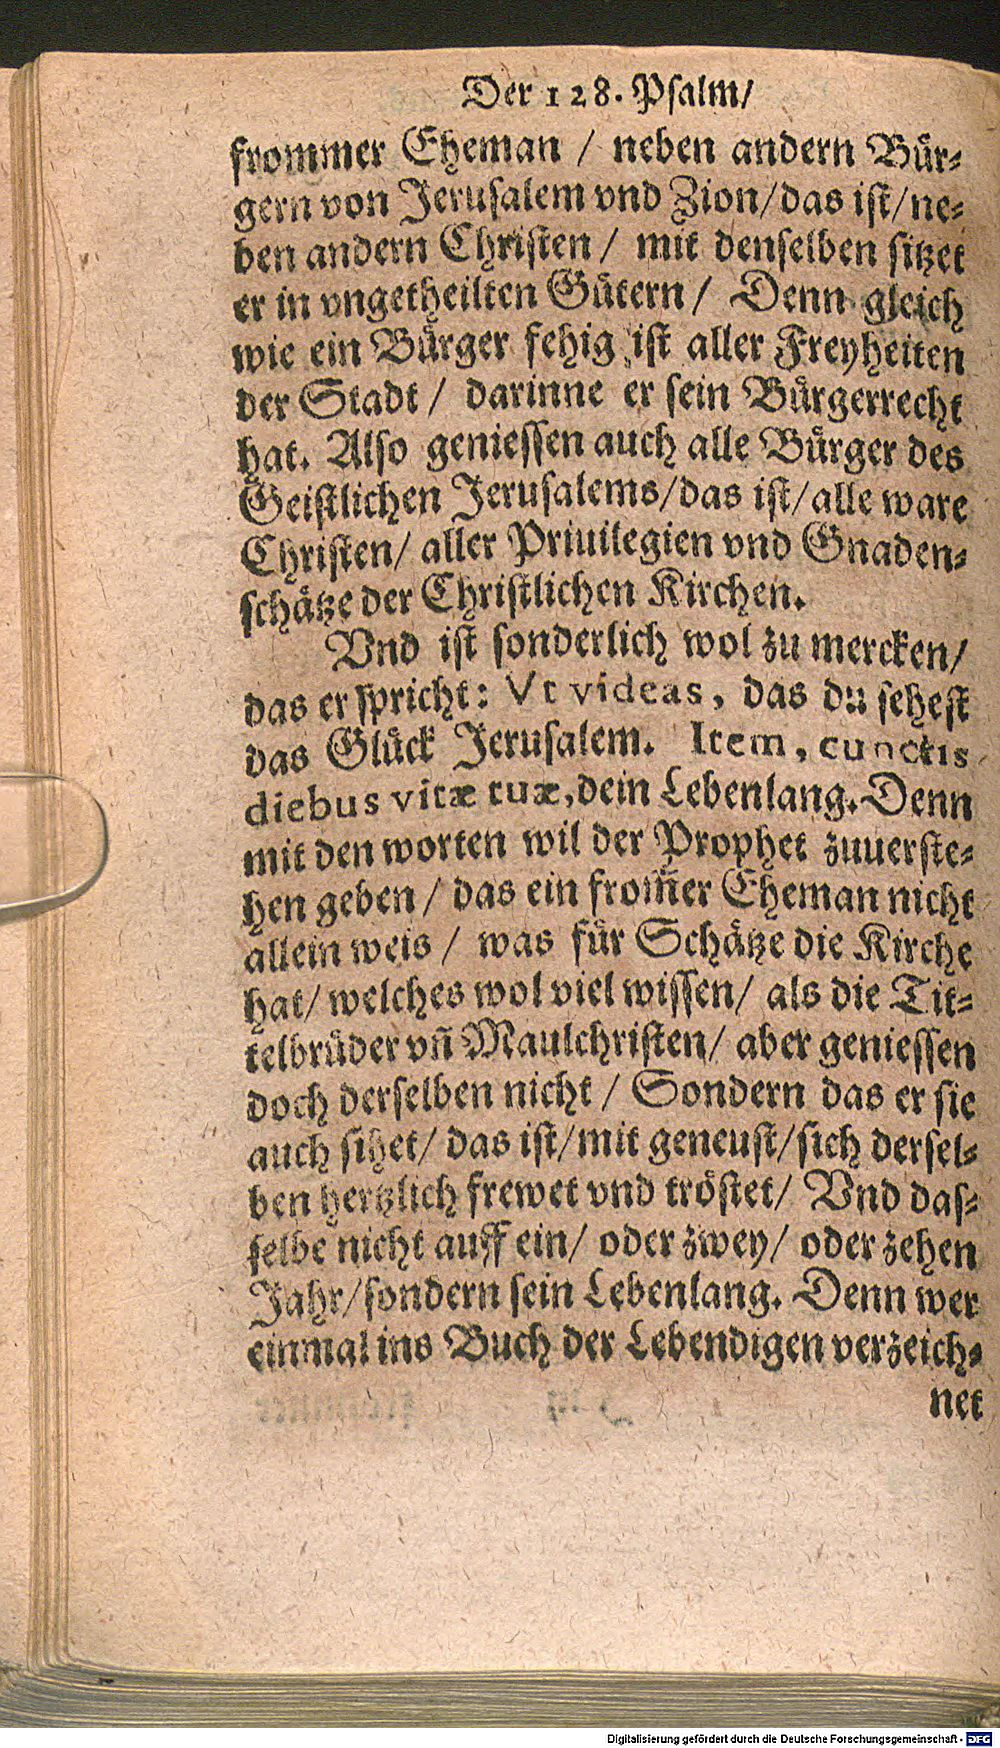 Der 128. Psalm/
frommer Eheman / neben andern Bür-
gern von Jerusalem vnd Zion/das ist/ne-
ben andern Christen / mit denselben sitzet
er in vngetheilten Gütern / Denn gleich
wie ein Bürger fehig ist aller Freyheiten
der Stadt / darinne er sein Bürgerrecht
hat. Also geniessen auch alle Bürger des
Geistlichen Jerusalems/das ist/alle ware
Christen/ aller Priuilegien vnd Gnaden-
schätze der Christlichen Kirchen.
Vnd ist sonderlich wol zu mercken/
das er spricht: Vt videas, das du sehest
das Glück Jerusalem. Item, cunctis
diebus vitæ tuæ, dein Lebenlang. Denn
mit den worten wil der Prophet zuuerste-
hen geben / das ein from̃er Eheman nicht
allein weis / was für Schätze die Kirche
hat/ welches wol viel wissen/ als die Tit-
telbrüder vñ Maulchristen/ aber geniessen
doch derselben nicht / Sondern das er sie
auch sihet/ das ist/mit geneust/sich dersel-
ben hertzlich frewet vnd tröstet/ Vnd das-
selbe nicht auff ein/ oder zwey/ oder zehen
Jahr/sondern sein Lebenlang. Denn wer
einmal ins Buch der Lebendigen verzeich-
net
Digitalisierung gefördert durch die Deutsche Forschungsgemeinschaft - DFG